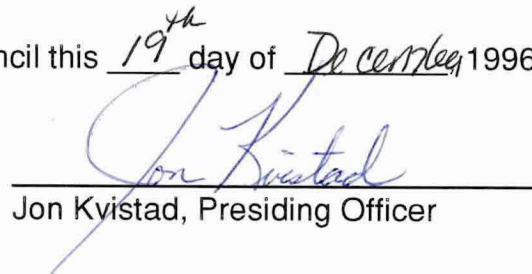 ncil this 19th day of December, 1996
Jon Kvistad
Jon Kvistad, Presiding Officer